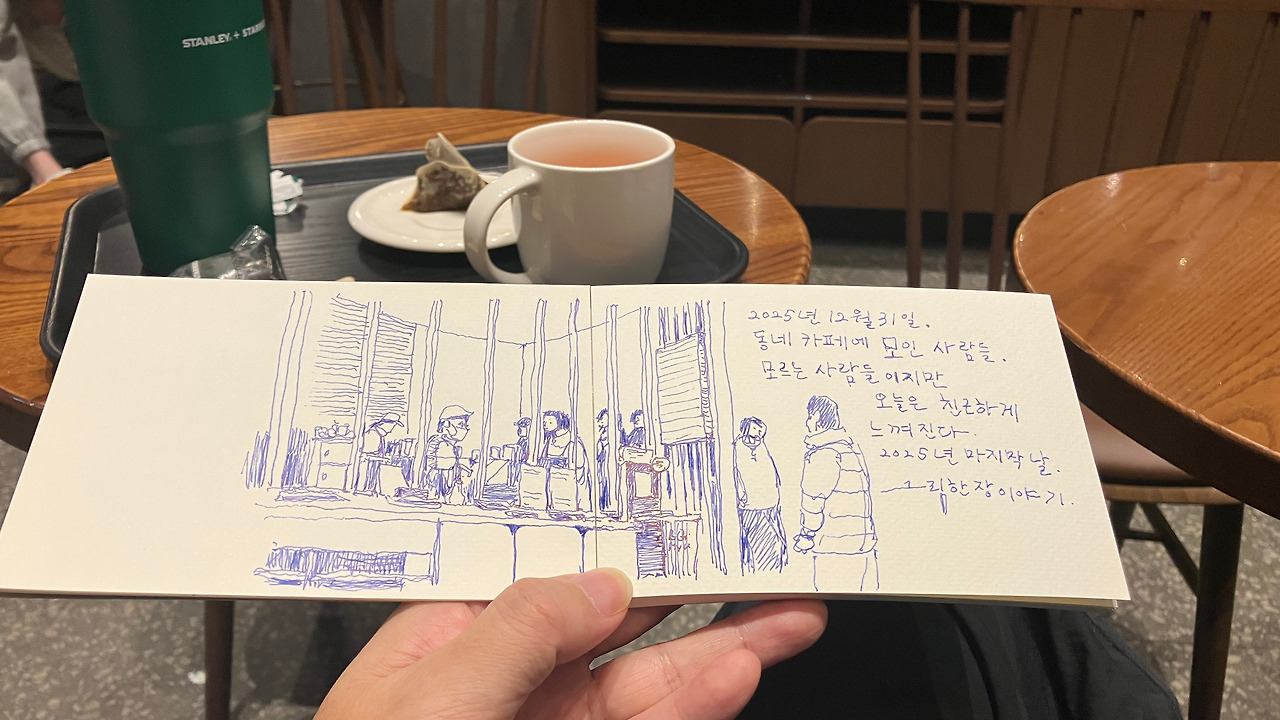 STANLEY. + STAR
2025년 12월 31일.
동네 카페에 모인 사람들.
모르는 사람들이지만
오늘은 친근하게
느껴진다.
2025년 마지막 날.
그림한장이야기.